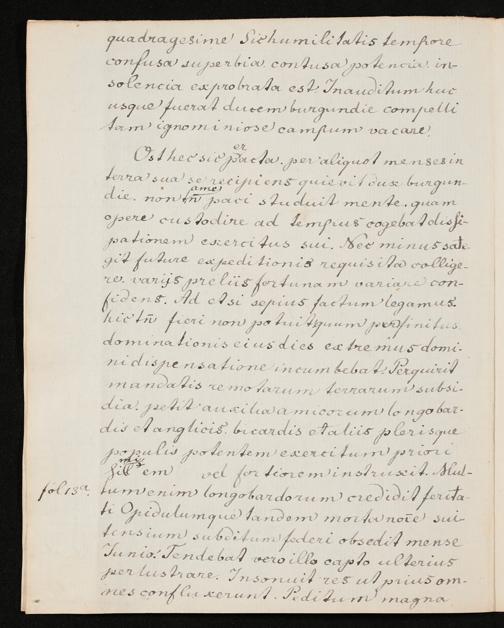 quadragesime Sic humilitatis tempore
confusa superbia contusa potencia in-
solencia exprobrata est Inauditum huc
usque fuerat ducem burgundie compelli
tam ignominiose campum vacare.
Ost hec sic pacta per aliquot menses in
er
terra sua se recipiens quievit dux burgun-
ame
die. non tñ paci studuit mente. quam
opere custodire ad tempus cogebat dissi-
pationem exercitus sui. Nec minus sate
git future expeditionis requisita collige-
re. varijs preliis fortunam variare con-
fidens. Ad etsi sepius factum legamus.
hic tñ fieri non potuit quum perfinitus
dominationis eius dies extremus domi-
ni dispensatione incumbebat. Perquirit
mandatis remotarum terrarum subsi-
dia. petit auxilia amicorum longobar-
dis et anglicis. bicardis et aliis plerisque
populis potentem exercitum priori
em vel fortiorem instruxit. Mul-
fol 13ª.
tum enim longobardorum credidit ferita-
ti Opidulumque tandem morta noie sui-
tensium subditum federi obsedit mense
Iunio. Tendebat vero illo capto ulterius
perlustrare. Insonuit res ut prius om-
nes confluxerunt. Peditum magna